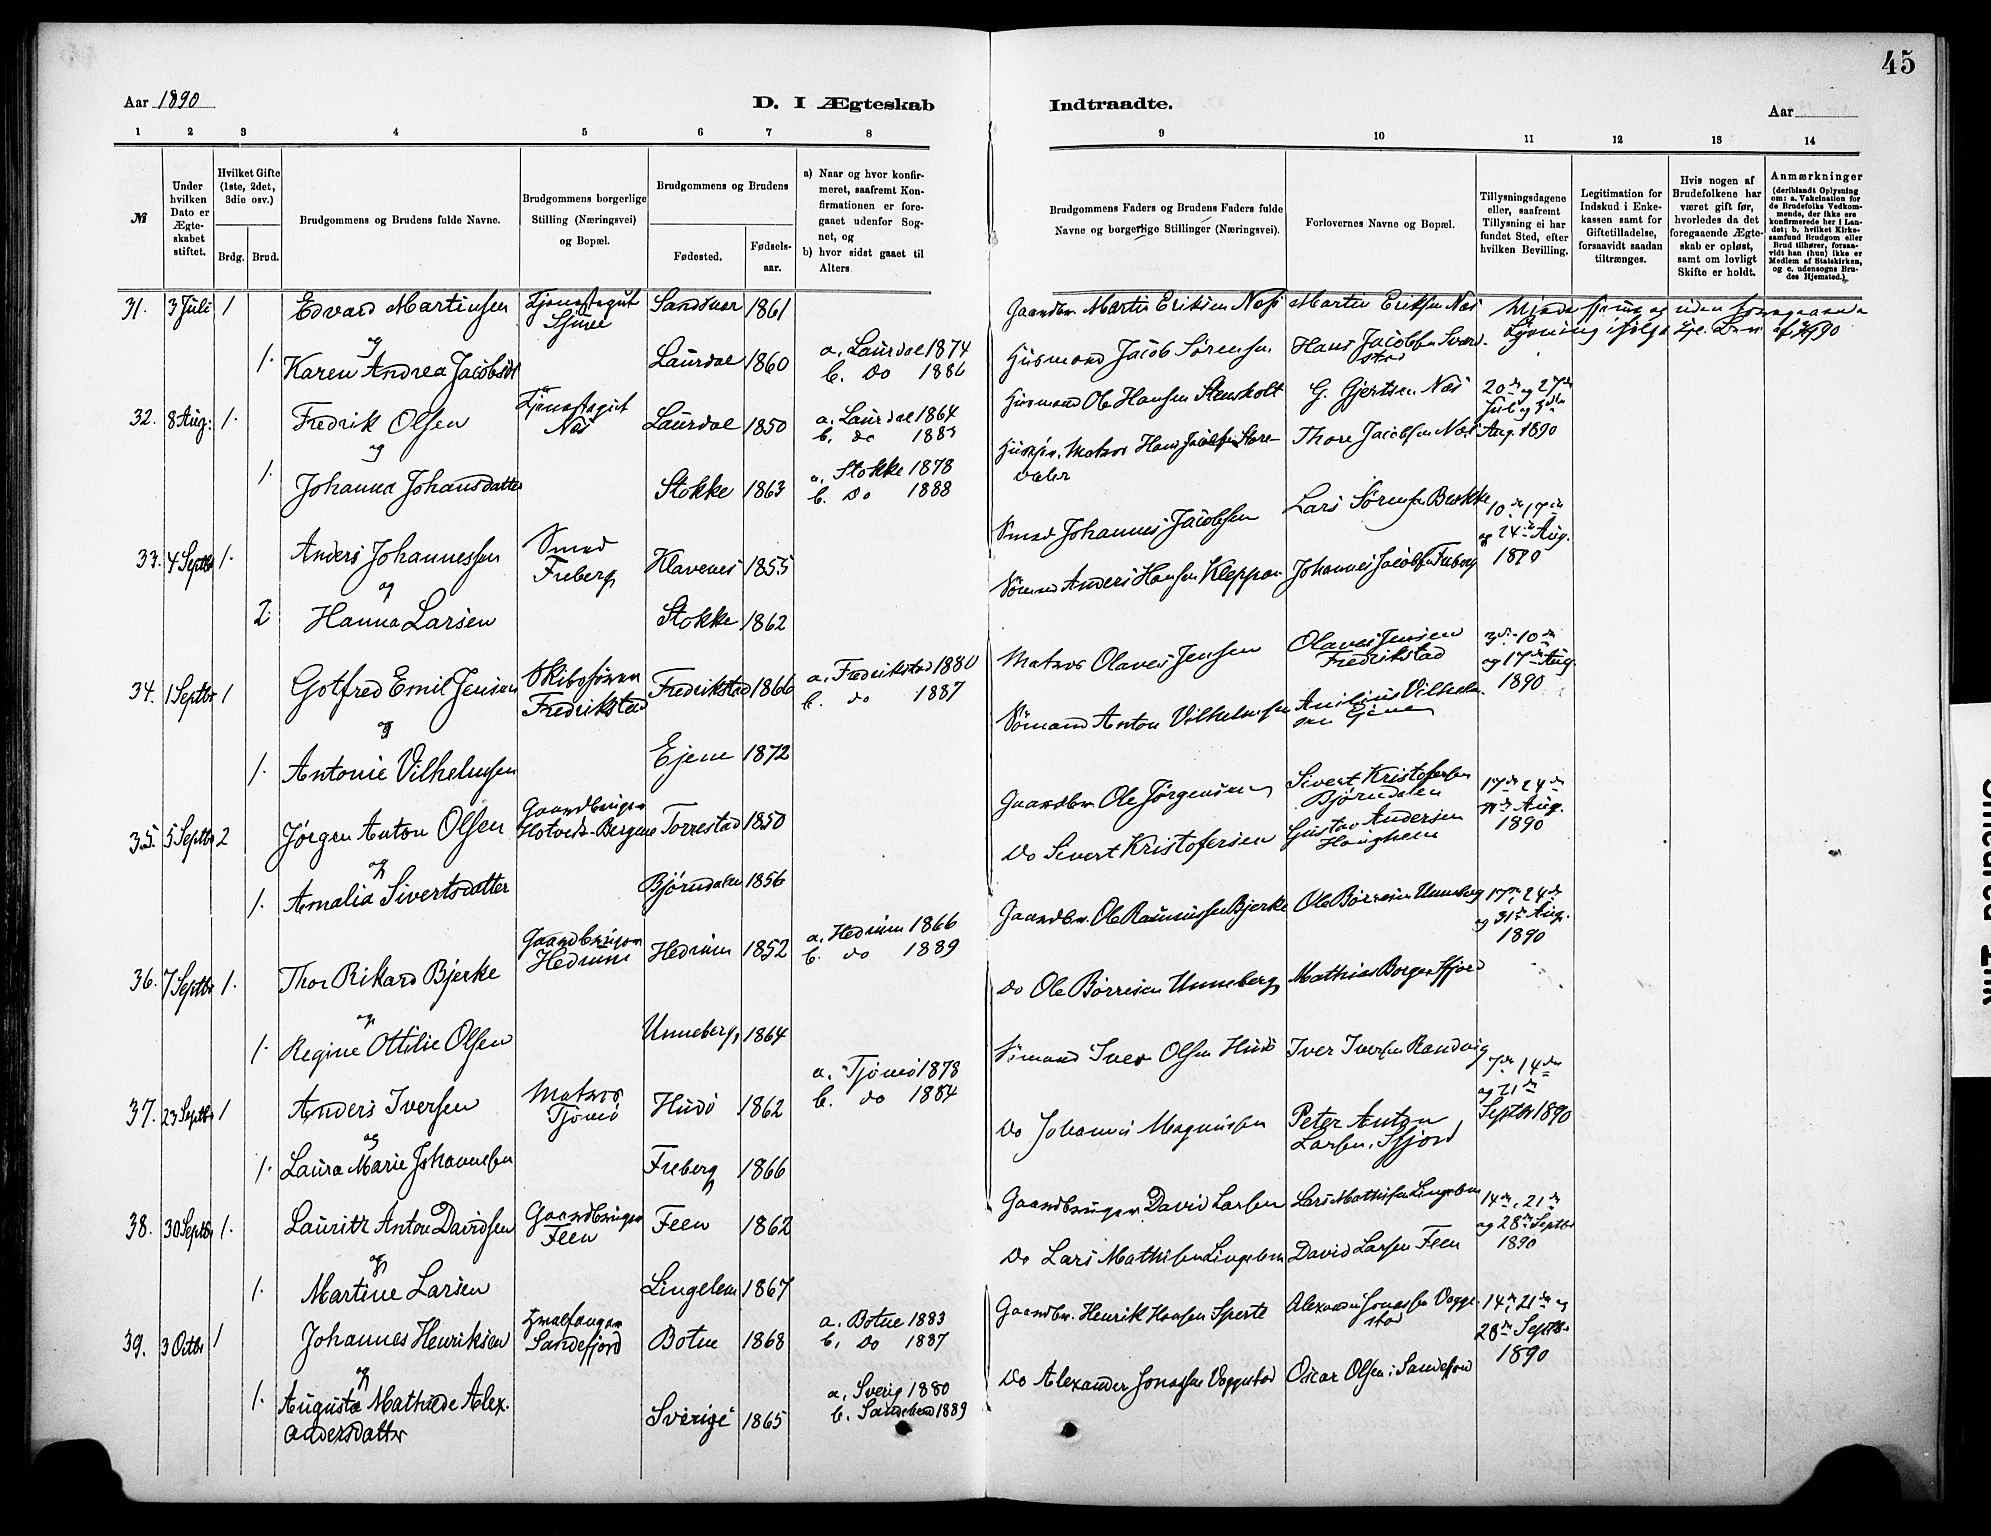 45
Aar 1890
D. I Ægteskab
Indtraadte.
Aar
1 2 3 4 5 6 7 8 9 10 11 12 13 14
№
Under hvilken Dato er Ægteskabet stiftet.
Hvilket Gifte (1ste, 2det, 3die osv.)
Brdg. Brud.
Brudgommens og Brudens fulde Navne.
Brudgommens borgerlige Stilling (Næringsvei) og Bopæl.
Brudgommens og Brudens
Fødested.
Fødselsaar.
a) Naar og hvor konfirmeret, saafremt Konfirmationen er foregaaet udenfor Sognet, og
b) hvor sidst gaaet til Alters.
Brudgommens Faders og Brudens Faders fulde Navne og borgerlige Stillinger (Næringsvei).
Forlovernes Navne og Bopæl.
Tillysningsdagene eller, saafremt Tillysning ei har fundet Sted, efter hvilken Bevilling.
Legitimation for Indskud i Enkekassen samt for Giftetilladelse, forsaavidt saadan tiltrænges.
Hvis nogen af Brudefolkene har været gift før, hvorledes da det foregaaende Ægteskab er opløst, samt om lovligt Skifte er holdt.
Anmærkninger
(deriblandt Oplysning om: a. Vakcination for de Brudefolks Vedkommende, der ikke ere konfirmerede her i Landet; b. hvilket Kirkesamfund Brudgom eller Brud tilhører, forsaavidt han (hun) ikke er Medlem af Statskirken, og c. udensogns Brudes Hjemsted.)
31. 3 Juli 1 Edvard Martinsen Tjenestegut 1861
Gaardbr. Martin Eriksen Næs Martin Eriksen Næs
og
1. Karen Andrea Jacobsdt Laurdal 1860 a. Laurdal 1874
b. Do 1886
Husmand Jacob Sørensen
1890
32. 8 Aug: 1. Fredrik Olsen Tjenestegut Næs Laurdal 1850 a. Laurdal 1864
b. do 1883
Husmand Ole Hansen Stenholt G. Gjertsen Næs 20de og 27de
Juli og 3die Aug. 1890
og
1. Johanna Johansdatter Stokke 1863 a. Stokke 1878
b. Do 1888
Thore Jacobsen Næs
33. 4 Septbr 1. Anders Johannessen Smed Freberg Klavenes 1855
Smed Johannes Jacobsen Lars Sørensen Bukke 10de 17de
og 24de Aug. 1890
og
2. Hanna Larsen Stokke 1862
Sømand Anders Hansen Kleppan Johannes Jacobsen Freberg
34. 1 Septbr 1 Gotfred Emil Jensen Fredrikstad Fredrikstad 1866 a. Fredrikstad 1880
b. do 1887
Matros Olaves Jensen Olaves Jensen Fredrikstad 3die 10de
og 17de Aug. 1890
og
1. Antonie Vilhelmsen Ejene 1872
Sømand Anton Vilhelmsen
35. 5 Septbr 2 Jørgen Anton Olsen Gaardbruger Hotvedt-Bergene Torrestad 1850
Gaardbr. Ole Jørgensen Sivert Kristofersen Bjørndalen 17de 24de
31de Aug. 1890
og
1. Amalia Sivertsdatter Bjørndalen 1856
Do Sivert Kristofersen Gustav Andersen Haughem
36. 7 Septbr 1. Thor Rikard Bjerke Gaardbruger Hedrum Hedrum 1852 a. Hedrum 1866
b. do 1889
Gaardbr. Ole Rasmussen Bjerke Ole Børresen Unneberg 17de, 24de
og 31de Aug. 1890
og
1. Regine Ottilie Olsen Unneberg 1864
Do Ole Børresen Unneberg
37. 23 Septbr 1 Anders Iversen Matros Tjømø Hudø 1862 a. Tjømø 1878
b. do 1884
Sømand Iver Olsen Hudø Iver Iversen Randvig 7de 14de
og 21de Septbr 1890
og
1. Laura Marie Johannesen Freberg 1866
Do Johannes Magnusen Peter Anton Larsen, Sfjord
38. 30 Septbr 1. Lauritz Anton Davidsen Gaardbruger Feen Feen 1862
Gaardbruger David Larsen Lars Mathisen Lingelem 14de, 21de
og 28de Septbr 1890
og
1. Martine Larsen Lingelem 1867
Do Lars Mathisen Lingelem David Larsen Feen
39. 3 Octbr 1 Johannes Henriksen Hvalfanger Sandefjord Botne 1868 a. Botne 1883
b. Do 1887
Gaardbr. Henrik Hansen Sperte Alexander Jonassen Voggestad 14de, 21de og
28de Septbr 1890
og
1. Augusta Mathilde Alexandersdatter Sverige 1865 a. Sverig 1880
b. 1889
Do Alexander Jonassen Voggestad Oscar Olsen i Sandefjord